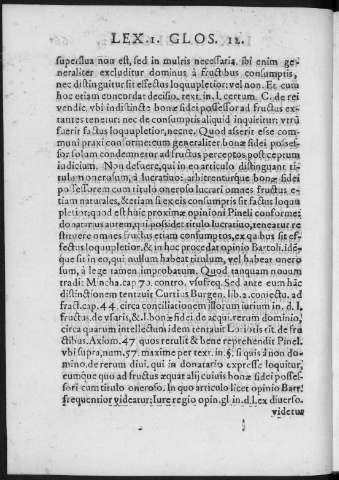 LEX. 1. GLOS. 12.
superflua non est, sed in multis necessaria. ibi enim ge-
neraliter excluditur dominus à fructibus consumptis,
nec distinguitur sit effectus loquupletior: vel non. Et cum
hoc etiam concordat decisio. text. in l. certum. C. de rei
vendic. vbi indistincte bonæ fidei possessor ad fructus ex-
tantes tenetur: nec de consumptis aliquid inquiritur: vtrũ
fuerit factus loquupletior, necne. Quod asserit esse com
muni praxi conforme: cum generaliter bonæ fidei posses-
sor solum condemnetur ad fructus perceptos post ceptum
iudicium. Non defuere, qui in eo articulo distinguant ti-
tulũ onerosum, à lucratiuo: arbitrenturque bonæ fidei
possessorem cum titulo oneroso lucrari omnes fructus e-
tiam naturales, & etiam si ex eis consumptis sit factus loqui
pletior: quod est huic proximæ opinioni Pineli conforme:
donatarius autem, qui possidet titulo lucratiuo, teneatur re
stituere omnes fructus etiam consumptos, ex quibus sit ef-
fectus loquupletior, & in hoc procedat opinio Bartoli. idẽ-
que sit in eo, qui nullum habeat titulum, vel habeat onero
sum, à lege tamen improbatum. Quod tanquam nouum
tradit Mincha. cap 70. contro. vsufreq. Sed ante eum hãc
distinctionem tentauit Curtius Burgen. lib. 2. coniectu. ad
fract. cap. 44. circa conciliationem illorum iurium in. d. l.
fructus. de vsuris, & l. bonæ fidei de acqui. rerum dominio,
circa quarum intellectum idem tentauit Loriotis tit. de fru
ctibus. Axiom. 47 quos retulit & bene reprehendit Pinel.
vbi supra, num. 57. maxime per text. in §. si quis à non do-
mino. de rerum diui. qui in donatario expresse loquitur,
eumque quo ad fructus æquat alij cuiuis bonæ fidei posses-
sori cum titulo oneroso. In quo articulo licet opinio Bart.
frequentior videatur: Iure regio opin. gl in. d. l. ex diuerso.
videtur